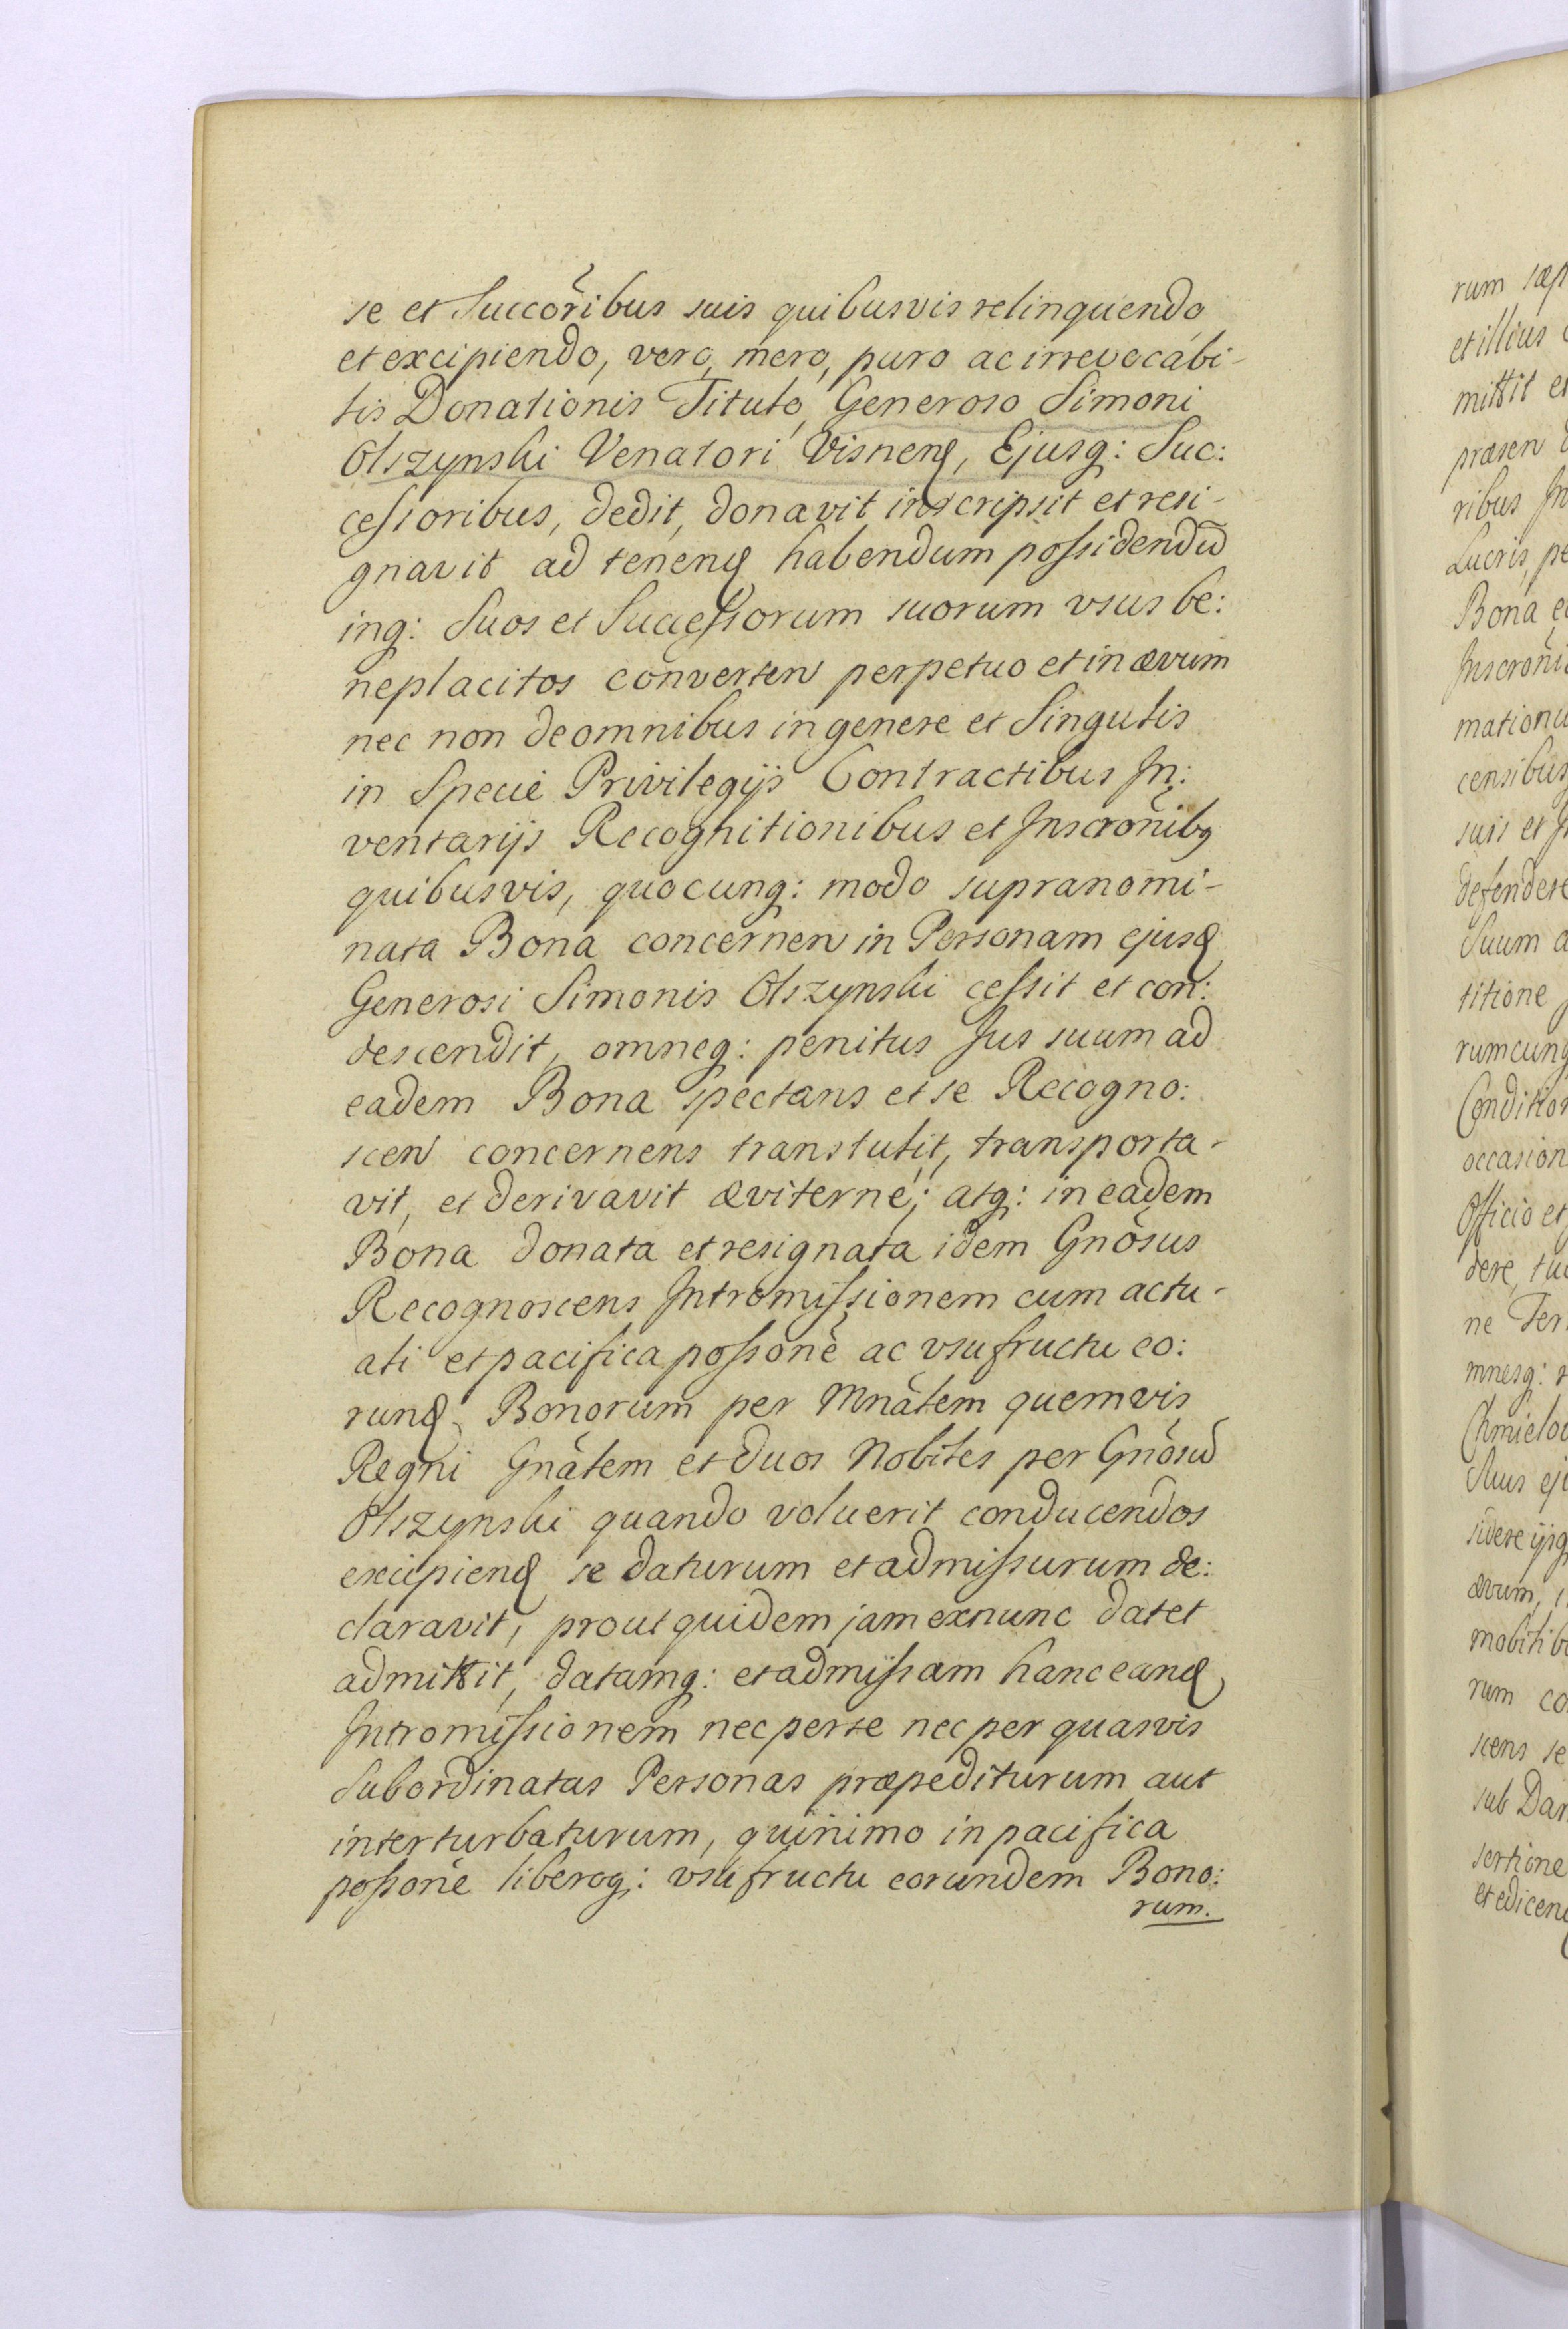 se et Succõribus suis quibusvis relinquendo
et excipiendo, vero, mero, puro ac irrevocabi-
lis Donationis Titulo, Generoso Simoni
Olszynski Venatori Visnenꝭ, Ejusq: Suc:
cessoribus, dedit, donavit inscripsit et resi-
gnavit ad tenenꝭ habendum possidendũ
inq: Suos et Successorum suorum vsus be:
neplacitos converten perpetuo et in ævum
nec non de omnibus in genere et Singulis
in Specie Privilegijs Contractibus In:
ventarijs Recognitionibus et Inscrõnibꝫ
quibusvis, quocunq: modo supranomi-
nata Bona concernen in Personam ejusꝭ
Generosi Simonis Olszynski cessit et con:
descendit, omneq: penitus Jus suum ad
eadem Bona spectans et se Recogno:
scen concernens transtulit, transporta-
vit, et derivavit æviterne; atq: in eadem
Bona donata et resignata idem Gnõsus
Recognoscens Intromissionem cum actu-
ali et pacifica possonẽ ac vsufructu eo:
runꝭ Bonorum per Mnãlem quemvis
Regni Gnãlem et duos Nobiles per Gnõsũ
Olszynski quando voluerit conducendos
excipienꝭ se daturum et admissurum de:
claravit, prout quidem jam exnunc dat et
admittit, datamq: et admissam hanc eanꝭ
Intromissionem nec per se nec per quasvis
Subordinatas Personas præpediturum aut
interturbaturum, quinimo in pacifica
possonẽ liberoq: vsufructu eorundem Bono:
rum.
rum sæp
et illius
mittit e
præsen
ribus In
Lucris, pe
Bona e
Inscrõni
mationu
censibus
suis et I
defendere
Suum a
titione
rumcunq
Condition
occasion
Officio et
dere, tu
ne Ter
mnesq: 
Chmielo
Suus ej
sidere ijsq
ævum,
mobilib
rum co
scens se
sub Dam
sertione
et edicen